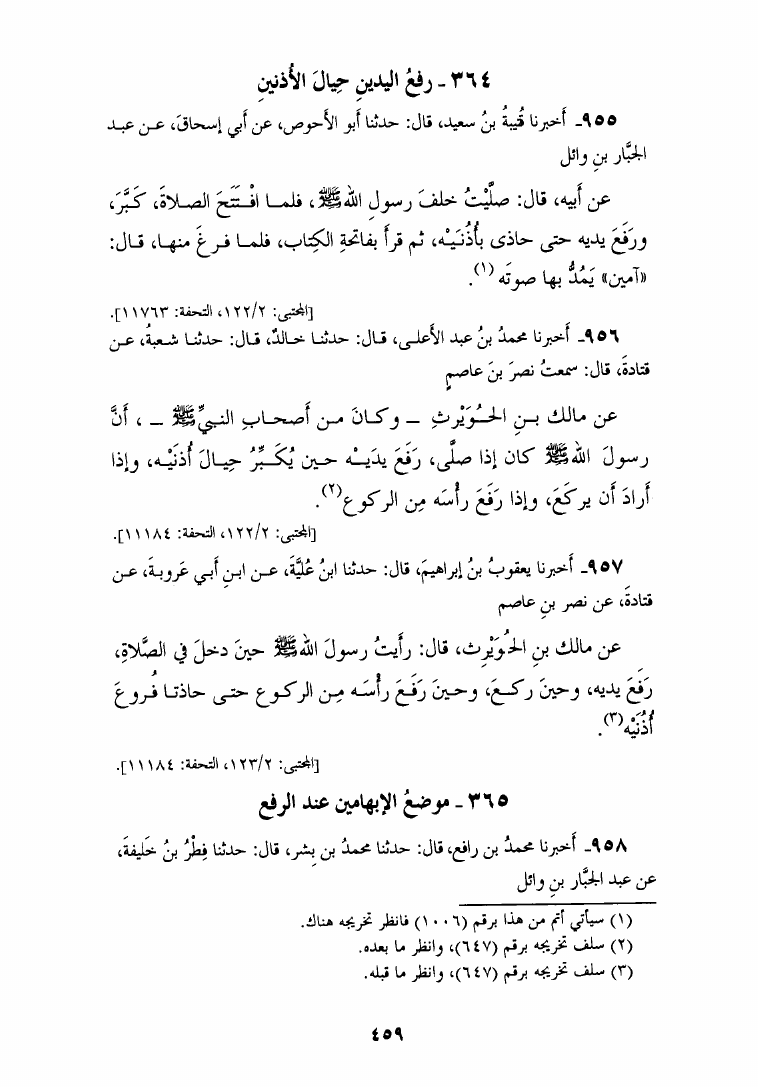 ٣٦٤ - رفعُ اليدينِ حِيالَ الأُذنينِ
٩٥٥- أخبرنا قُيبةُ بنُ سعيد، قال: حدثنا أبو الأحوص، عن أبي إسحاقَ، عـن عبـد
الجبَّار بنِ وائل
عن أبيه، قال: صلَّيْتُ خلفَ رسولِ اللهﷺ، فلمـا افْتَتَحَ الصـلاةَ، كَـبَّرَ،
ورَفَعَ يديه حتى حاذى بأُذُنَيْـه، ثم قرأ بفاتحةِ الكِتاب، فلمـا فـرغَ منهـا، قـال:
«آمين» يَمُدُّ بها صوتَه (١).
[المجتبى: ١٢٢/٢، التحفة: ١١٧٦٣].
٩٥٦- أخبرنا محمدُ بنُ عبد الأعلـى، قـال: حدثنـا خـالدٌ، قـال: حدثنـا شـعبةُ، عـن
قتادةَ، قال: سمعتُ نصرَ بنَ عاصمٍ
عن مالك بـنِ الحُـوَيْرِثِ – وكـانَ مـن أصحـابِ النبيِّﷺ – ، أنَّ
رسولَ اللهﷺ كان إذا صلَّى، رَفَعَ يدَيْـه حـين يُكَـبِّرُ حِيـالَ أُذنَيْـه، وإذا
أرادَ أن يركَعَ، وإذا رَفَعَ رأسَه مِن الركوع(٢).
[المجتبى: ١٢٢/٢، التحفة: ١١١٨٤].
٩٥٧- أخبرنا يعقوبُ بنُ إبراهيمَ، قال: حدثنا ابنُ عُليَّةَ، عـن ابـنِ أبـي عَروبـةَ، عـن
قتادةَ، عن نصر بنِ عاصم
عن مالك بنِ الحُوَيْرِث، قال: رأيتُ رسولَ اللهﷺ حينَ دخلَ في الصَّلاةِ،
رَفَعَ يديه، وحينَ ركـعَ، وحـينَ رَفَـعَ رأسَـه مِـن الركـوع حتـى حاذتـا فُـروعَ
أُذُنَيْه(٣).
[المجتبى: ١٢٣/٢، التحفة: ١١١٨٤].
٣٦٥ - موضعُ الإبهامين عند الرفع
٩٥٨- أخبرنا محمدُ بن رافع، قال: حدثنا محمدُ بن بِشر، قال: حدثنا فِطْرُ بنُ خَليفةَ،
عن عبد الجبَّار بنِ وائل
(١) سيأتي أتم من هذا برقم (١٠٠٦) فانظر تخريجه هناك.
(٢) سلف تخريجه برقم (٦٤٧)، وانظر ما بعده.
(٣) سلف تخريجه برقم (٦٤٧)، وانظر ما قبله.
٤٥٩